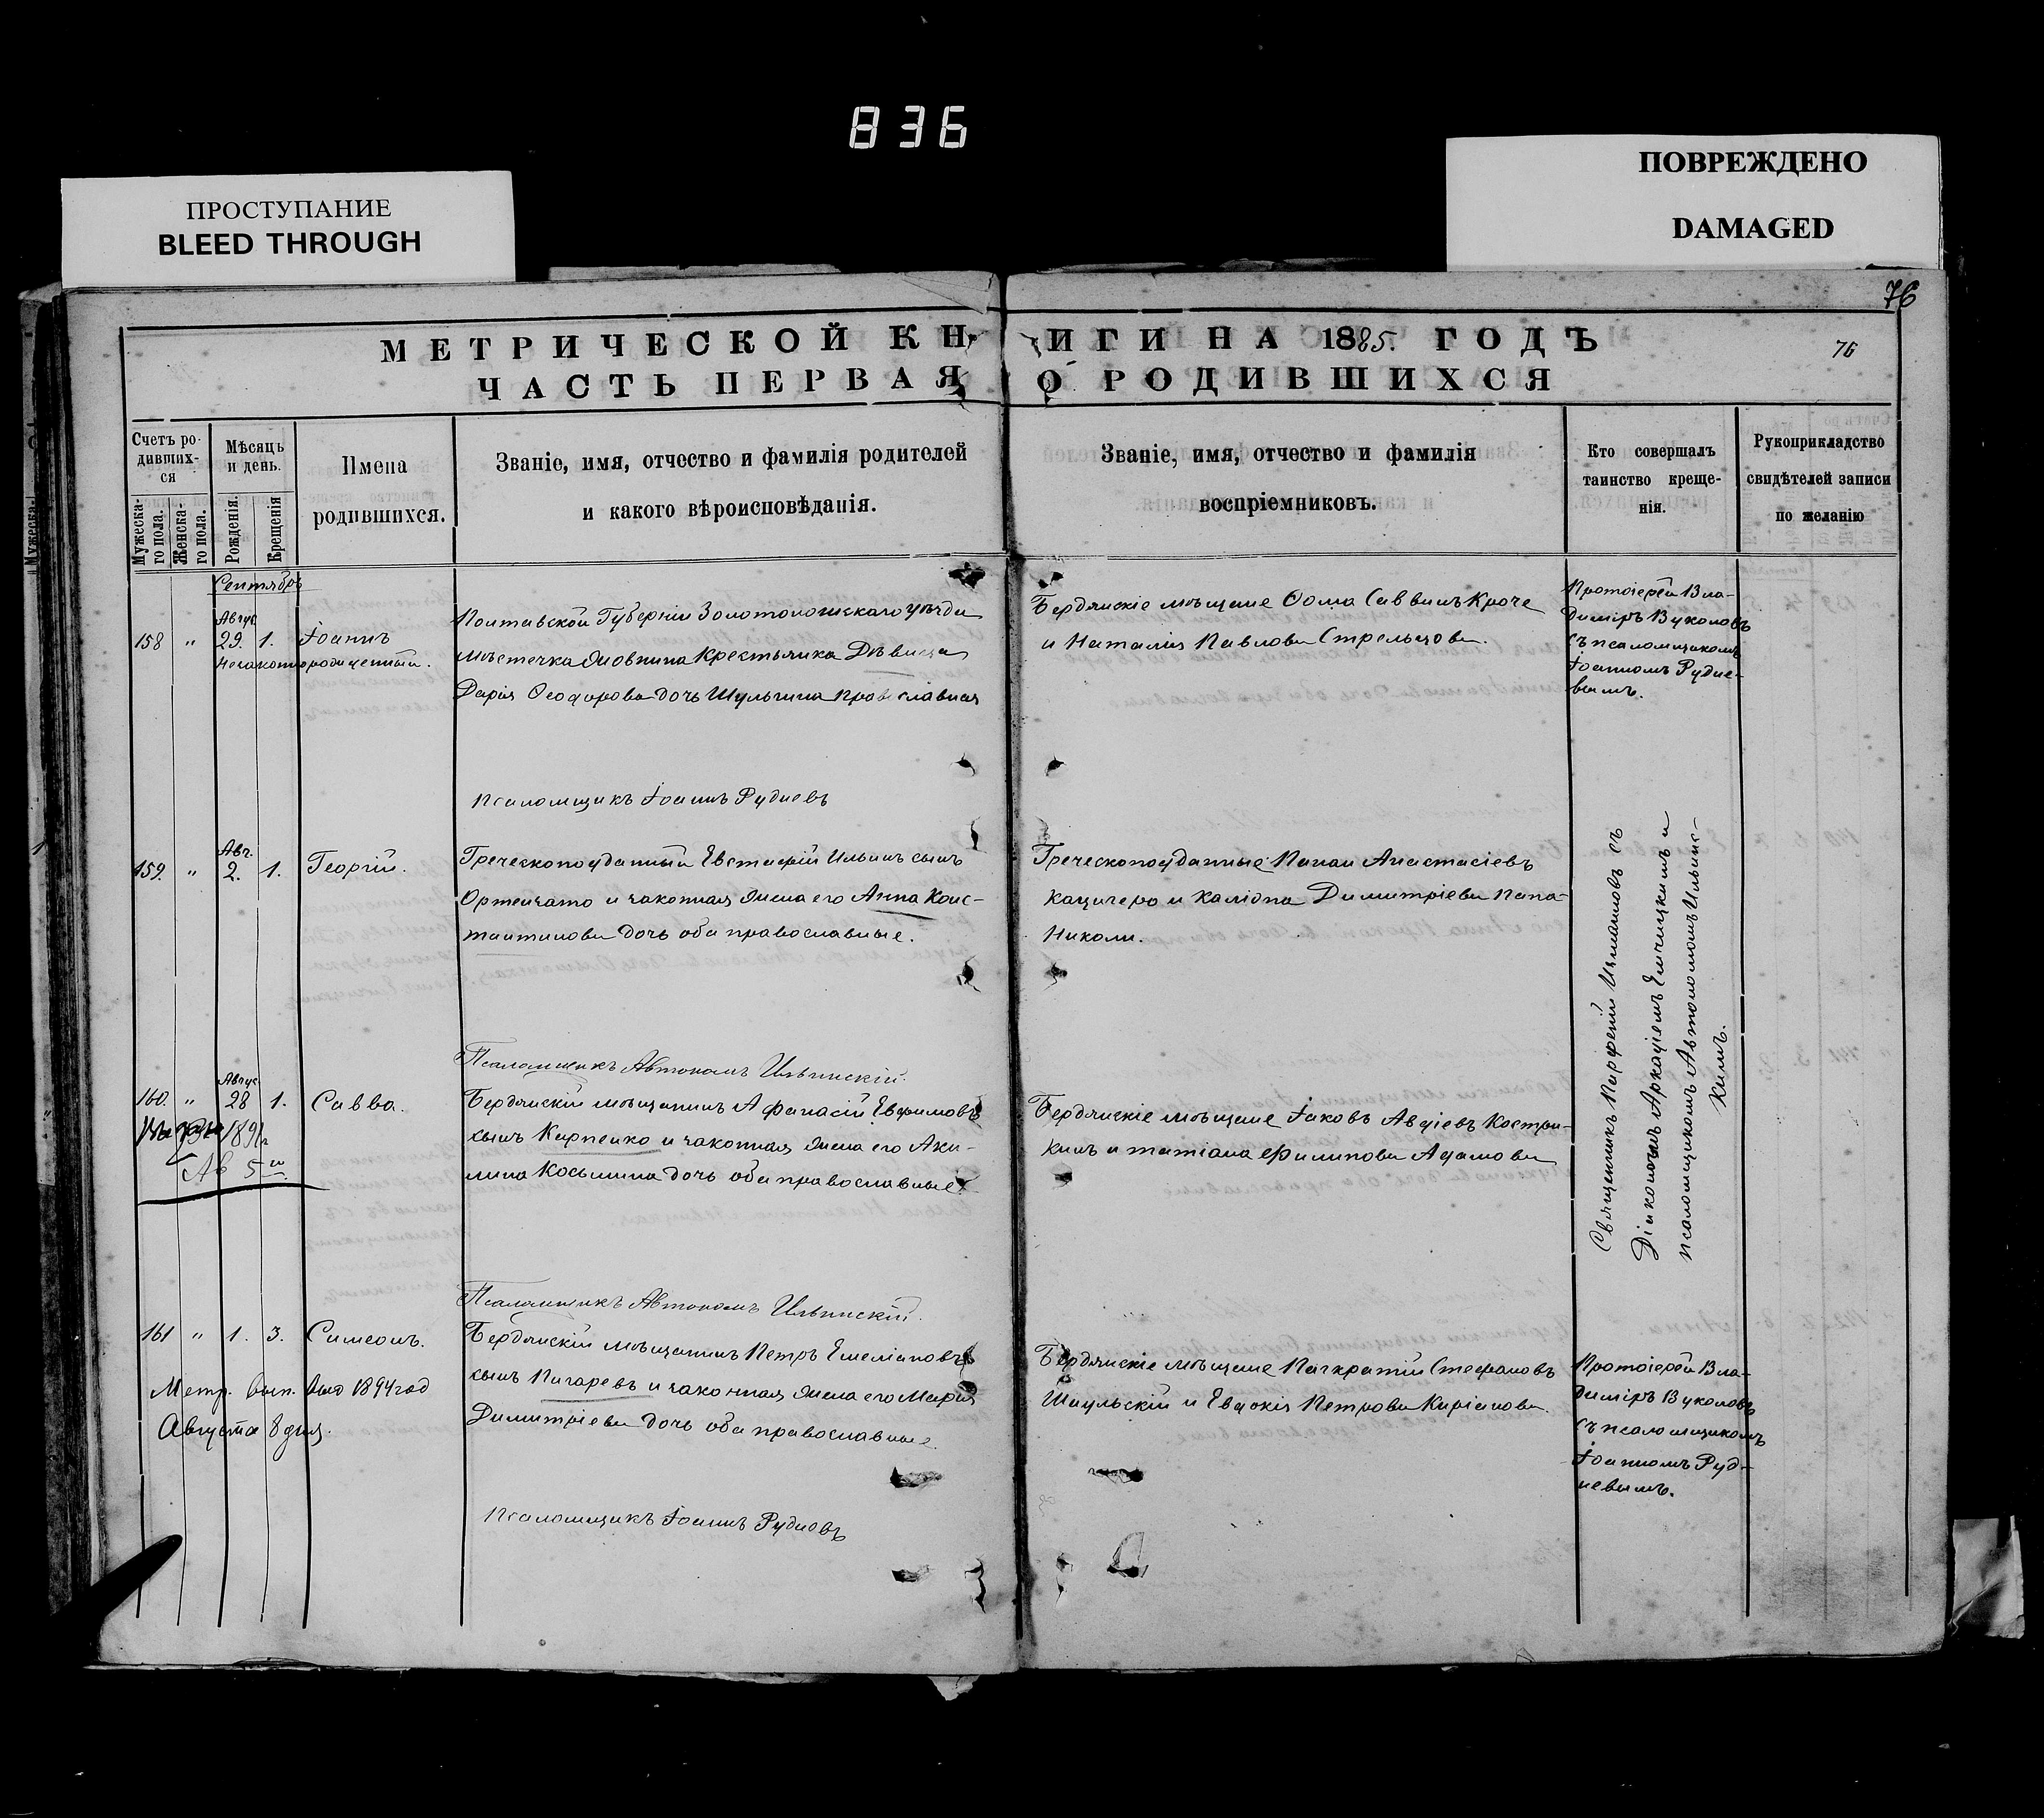 836
ПРОСТУПАНИЕ
BLEED THROUGH
ПОВРЕЖДЕНО
DAMAGED
76
МЕТРИЧЕСКОЙ КНИГИ НА 1885. ГОДЪ
76
ЧАСТЬ ПЕРВАЯ О РОДИВШИХСЯ
Счетъ ро-
дивших-
ся
Мужеска-
го пола.
Женска-
го пола.
Мѣсяцъ
и день.
Рожденія.
Крещенія
Имена
родившихся.
Званіе, имя, отчество и фамилія родителей
и какого вѣроисповѣданія.
Званіе, имя, отчество и фамилія
воспріемниковъ.
Кто совершалъ
таинство креще-
нія.
Рукоприкладство
свидѣтелей записи
по желанію
Сентябрь
158 " Авгус 29. 1. Іоаннъ
Незаконнорожденный.
Полтавской Губерніи Золотоношскаго уѣзда
мѣстечка крестьянка Дѣвица
Дарія Ѳеодорова дочь Шульгина православная
Бердянскіе мѣщане Ѳома Саввинъ Кроче
и Наталія Павлова Стрельцова.
Протоіерей Вла-
диміръ Вуколовъ
съ псаломщикомъ
Іоанномъ Рудне-
вымъ.
Псаломщикъ Іоаннъ Рудневъ
159. " Авг. 2. 1. Георгій.
Греческоподданный Евстафій Ильинъ сынъ
и законная жена его Анна Конс-
тантинова дочь оба православные.
Греческоподданные Панаи Анастасіевъ
и Димитріева Папа-
Николи.
Священникъ Парфеній Измаиловъ съ
Діакономъ Аркадіемъ и
псаломщикомъ Автономомъ Ильинс-
кимъ.
Псаломщикъ Автономъ Ильинскій.
160. " Авгус 28 1. Савва.
1891г
Ав 5го
Бердянскій мѣщанинъ Афанасій Евфимовъ
сынъ Карпенко и законная жена его Аки-
лина Косьмина дочь оба православные
Бердянскіе мѣщане Іаковъ Авдіевъ Костри-
кинъ и татіана Филипова Адамова
Псаломщикъ Автономъ Ильинскій.
161 " 1. 3. Симеонъ.
Метр. вып. выд 1894 год
Августа 8 дня.
Бердянскій мѣщанинъ Петръ Емеліановъ
сынъ Пигаревъ и законная жена его Марія
Димитріева дочь оба православные.
Бердянскіе мѣщане Панкратій Стефановъ
Шаульскій и Евдокія Петрова Киріанова.
Протоіерей Вла-
диміръ Вуколовъ
съ псаломщикомъ
Іоанномъ Руд-
невымъ.
Псаломщикъ Іоаннъ Рудневъ